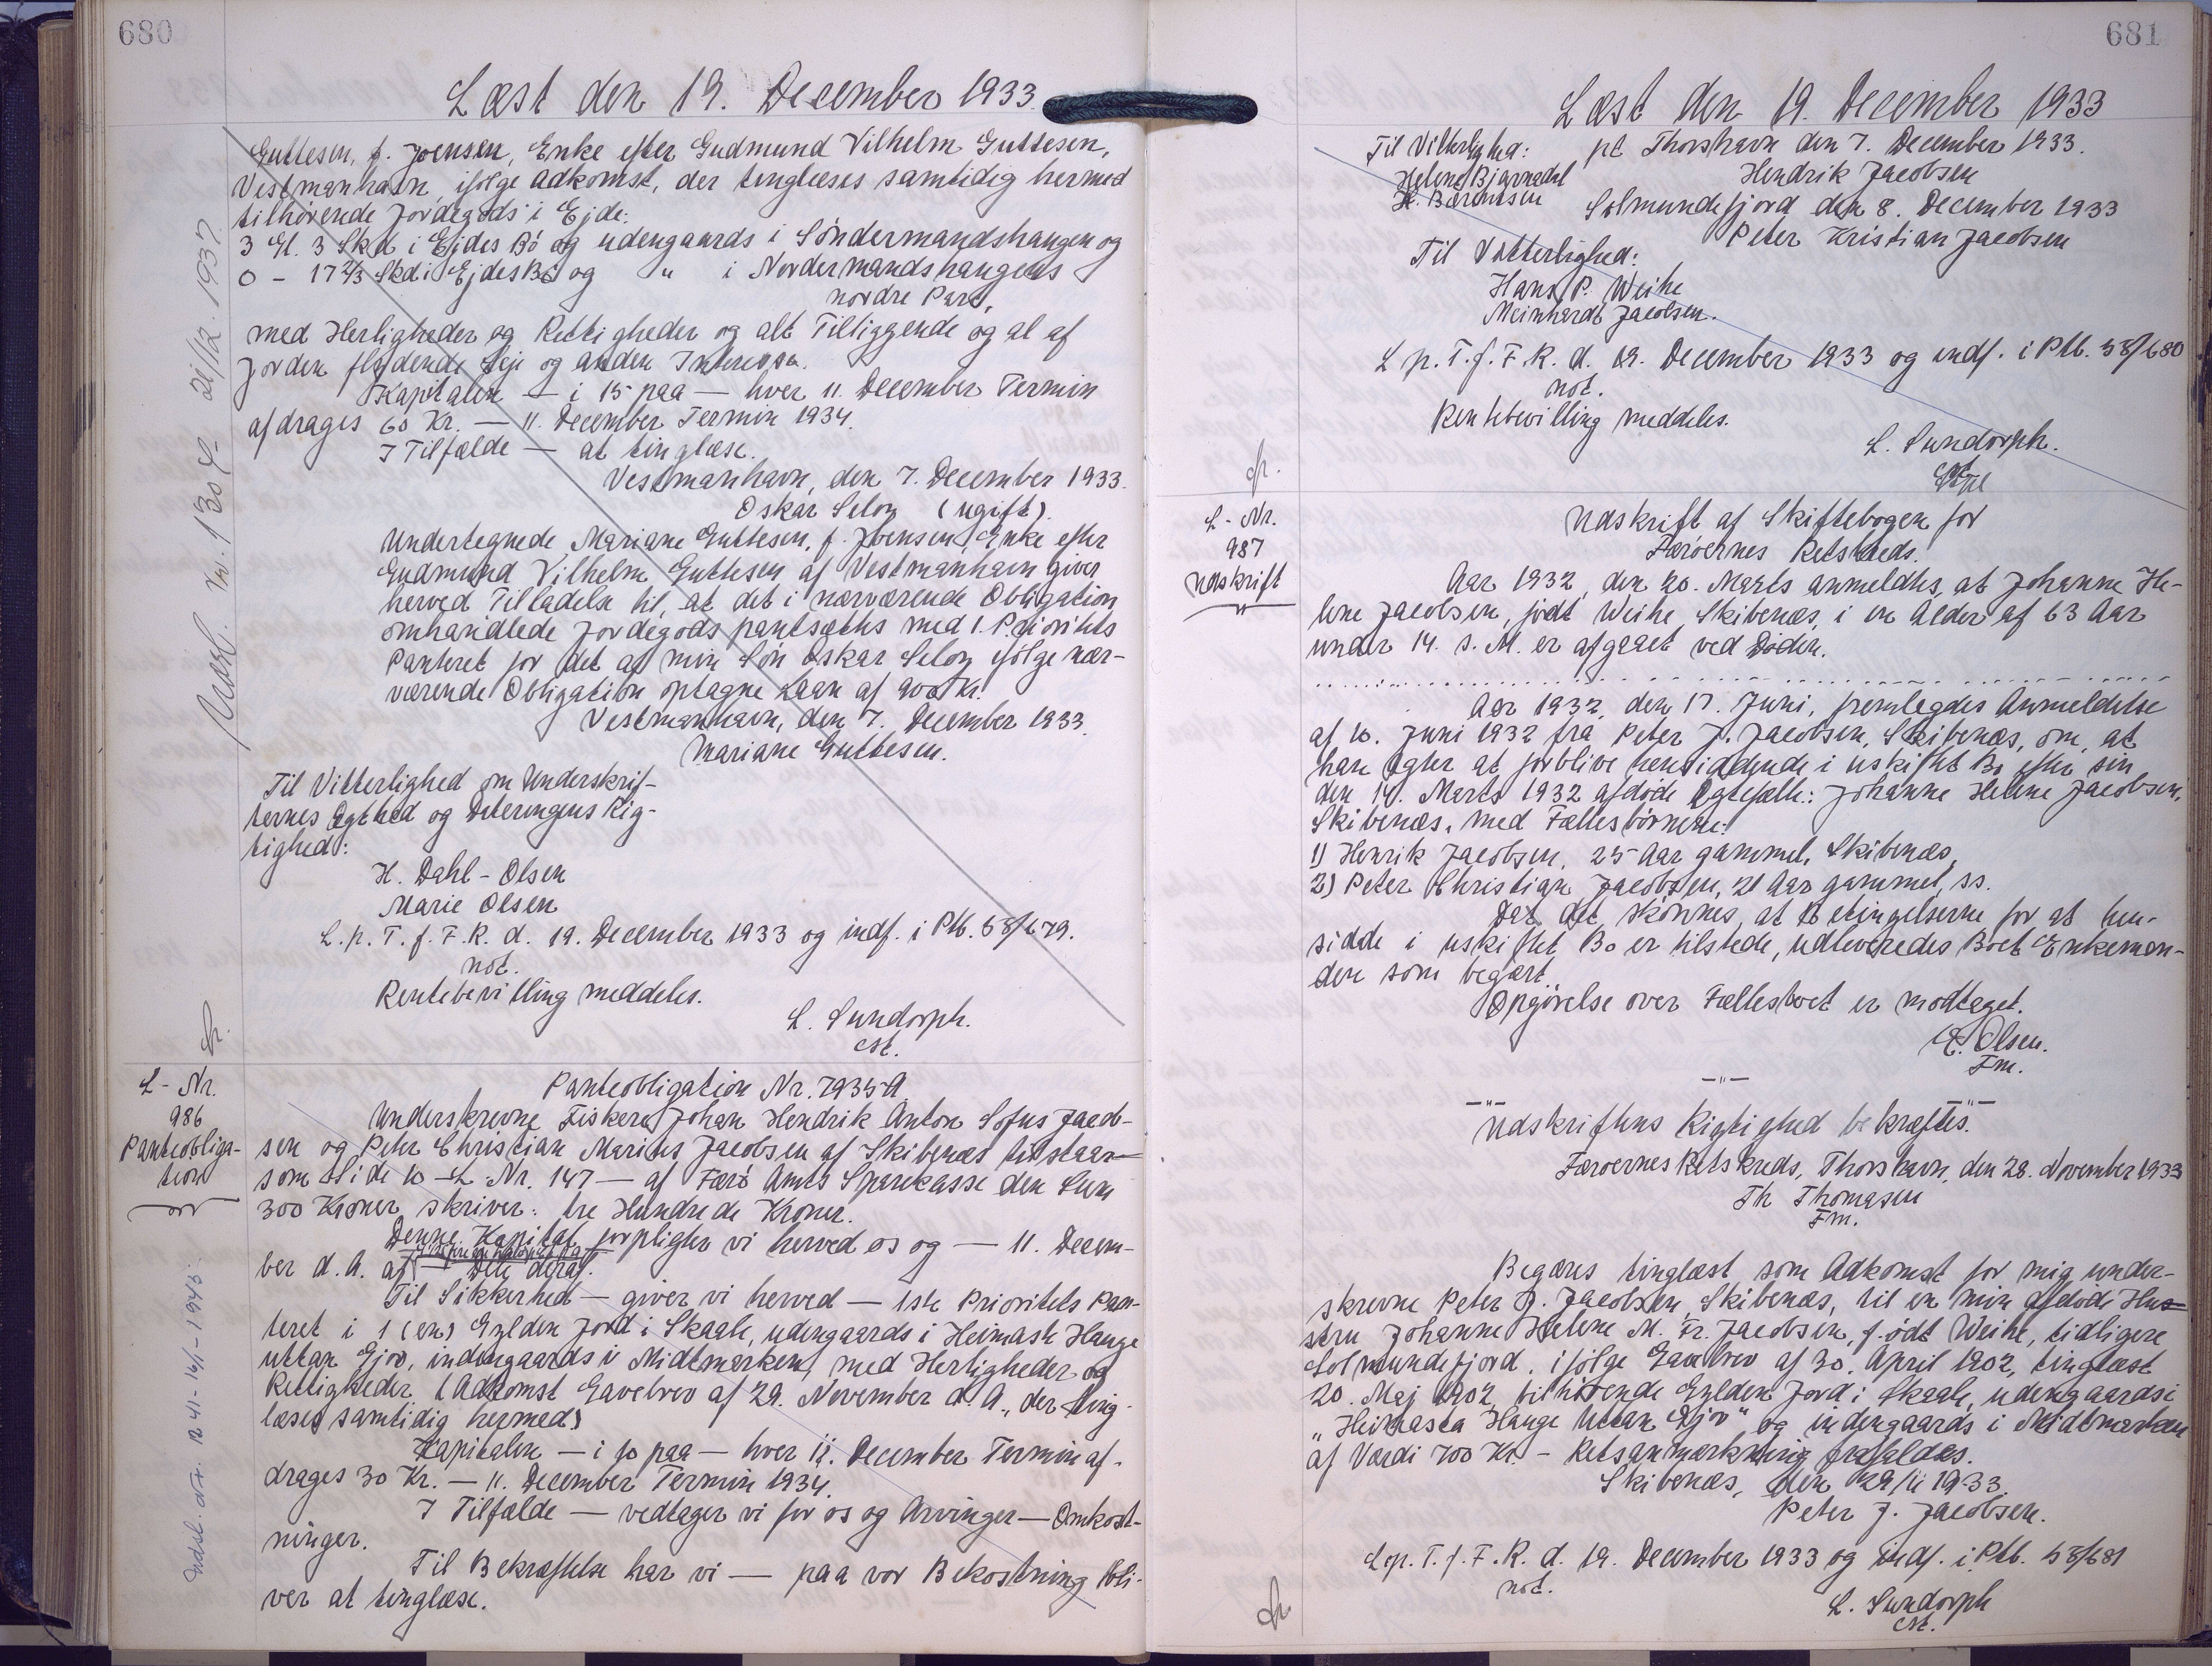 680
Læst den 19. December 1933.
Guttesen, f. Joensen, Enke efter Gudmund Vilhelm Guttesen,
Vestmanhavn, ifølge Adkomst, der tinglæses samtidig hermed
tilhørende Jordegods i Ejde:
3 Gl. 3 Skd i Ejdes Bø og udengaards i Søndermandshaugen og
0 - 17 2/3 Skd i Ejdes Bø og " i Nordermandshaugens
nordre Part,
med Herligheder og Rettigheder og alt Tilliggende og al af
Jorden flydende Leje og anden Interesse.
Kapitalen — i 15 paa — hver 11. December Termin
afdrages 60 Kr. — 11. December Termin 1934.
I Tilfælde — at tinglæse.
Vestmanhavn, den 7. December 1933.
Oskar Seloy (ugift).
Undertegnede Mariane Guttesen, f. Joensen, Enke efter
Gudmund Vilhelm Guttesen af Vestmanhavn giver
herved Tilladelse til, at det i nærværende Obligation
omhandlede Jordegods pantsættes med 1. Prioritets
Panteret for det af min Søn Oskar Seloy ifølge nær-
værende Obligation optagne Laan af 900 Kr.
Vestmanhavn, den 7. December 1933.
Mariane Guttesen.
Til Vitterlighed om Underskrif-
ternes Ægthed og Dateringens Rig-
tighed:
H. Dahl-Olsen
Marie Olsen
L. p. T. f. F. R. d. 19. December 1933 og indf. i Ptb. 58/679.
not.
Rentebevilling meddeles.
L. Sundorph.
cst.
L-Nr.
986
Panteobliga-
tion
Panteobligation Nr. 7935 A
Underskrevne Fiskere Johan Hendrik Anton Sofus Jacob-
sen og Peter Christian Marius Jacobsen af Skibenæs tilstaar —
som Side 10 - L Nr. 147 — af Færø Amts Sparekasse den Sum
300 Kroner, skriver: tre Hundrede Kroner.
Denne Kapital forpligter vi herved os og — 11. Decem-
ber d. A. af — Dele deraf.
Til Sikkerhed — giver vi herved — 1ste Prioritets Pan-
teret i 1 (en) Gylden Jord i Skaale, udengaards i Heimaste Hauge
uttan Gjov, indengaards i Midtmarken, med Herligheder og
Rettigheder. (Adkomst Gavebrev af 29. November d. A., der ting-
læses samtidig hermed)
Kapitalen — i 10 paa — hver 11. December Termin af-
drages 30 Kr. — 11. December Termin 1934.
I Tilfælde — vedtager vi for os og Arvinger — Omkost-
ninger.
Til Bekræftelse har vi — paa vor Bekostning bli-
ver at tinglæse.
681
Læst den 19. December 1933
Til Vitterlighed: pt Thorshavn den 7. December 1933.
Helene Bjarnadal Hendrik Jacobsen
H. Bærentsen Solmundefjord den 8. December 1933
Peter Kristian Jacobsen
Til Vitterlighed:
Hans P. Weihe
Meinhardt Jacobsen.
L p. T. f. F. R. d. 19. December 1933 og indf. i Ptb. 58/680
not.
Rentebevilling meddeles.
L. Sundorph.
cst
L-Nr.
987
Udskrift
Udskrift af Skiftebogen for
Færøernes Retskreds.
Aar 1932, den 20. Marts anmeldtes, at Johanne He-
lene Jacobsen, født Weihe, Skibenæs, i en Alder af 63 Aar
under 14. s. M. er afgaaet ved Døden.
Aar 1932, den 17. Juni, fremlagdes Anmeldelse
af 10. Juni 1932 fra Peter J. Jacobsen, Skibenæs, om, at
han agter at forblive hensiddende i uskiftet Bo efter sin
den 14. Marts 1932 afdøde Ægtefælle: Johanne Helene Jacobsen,
Skibenæs, med Fællesbørnene:
1) Henrik Jacobsen, 25 Aar gammel, Skibenæs,
2) Peter Christian Jacobsen, 21 Aar gammel, ss.
Da det skønnes, at Betingelserne for at hen-
sidde i uskiftet Bo er tilstede, udleveredes Boet Enkeman-
den som begært.
Opgørelse over Fællesboet er modtaget.
E. Olsen.
Fm.
— " —
— " — — " —
Udskriftens Rigtighed bekræftes.
Færøernes Retskreds, Thorshavn, den 28. November 1933
Th Thomasen
Fm.
Begæres tinglæst som Adkomst for mig under-
skrevne Peter J. Jacobsen, Skibenæs, til en min afdøde Hus-
stru Johanne Helene M. Fr. Jacobsen, født Weihe, tidligere
Solmundefjord, ifølge Gavebrev af 30. April 1902, tinglæst
20. Maj 1902, tilhørende Gylden Jord i Skaale, udengaards i
"Heimasta Hauge Uttan Gjov" og indengaards i Midtmarken
af Værdi 700 Kr. - Retsanmærkning frafaldes.
Skibenæs, den 29/11 1933.
Peter J. Jacobsen.
L. p. T. f. F. R. d. 19. December 1933 og indf. i Ptb. 58/681
not.
L. Sundorph
cst.